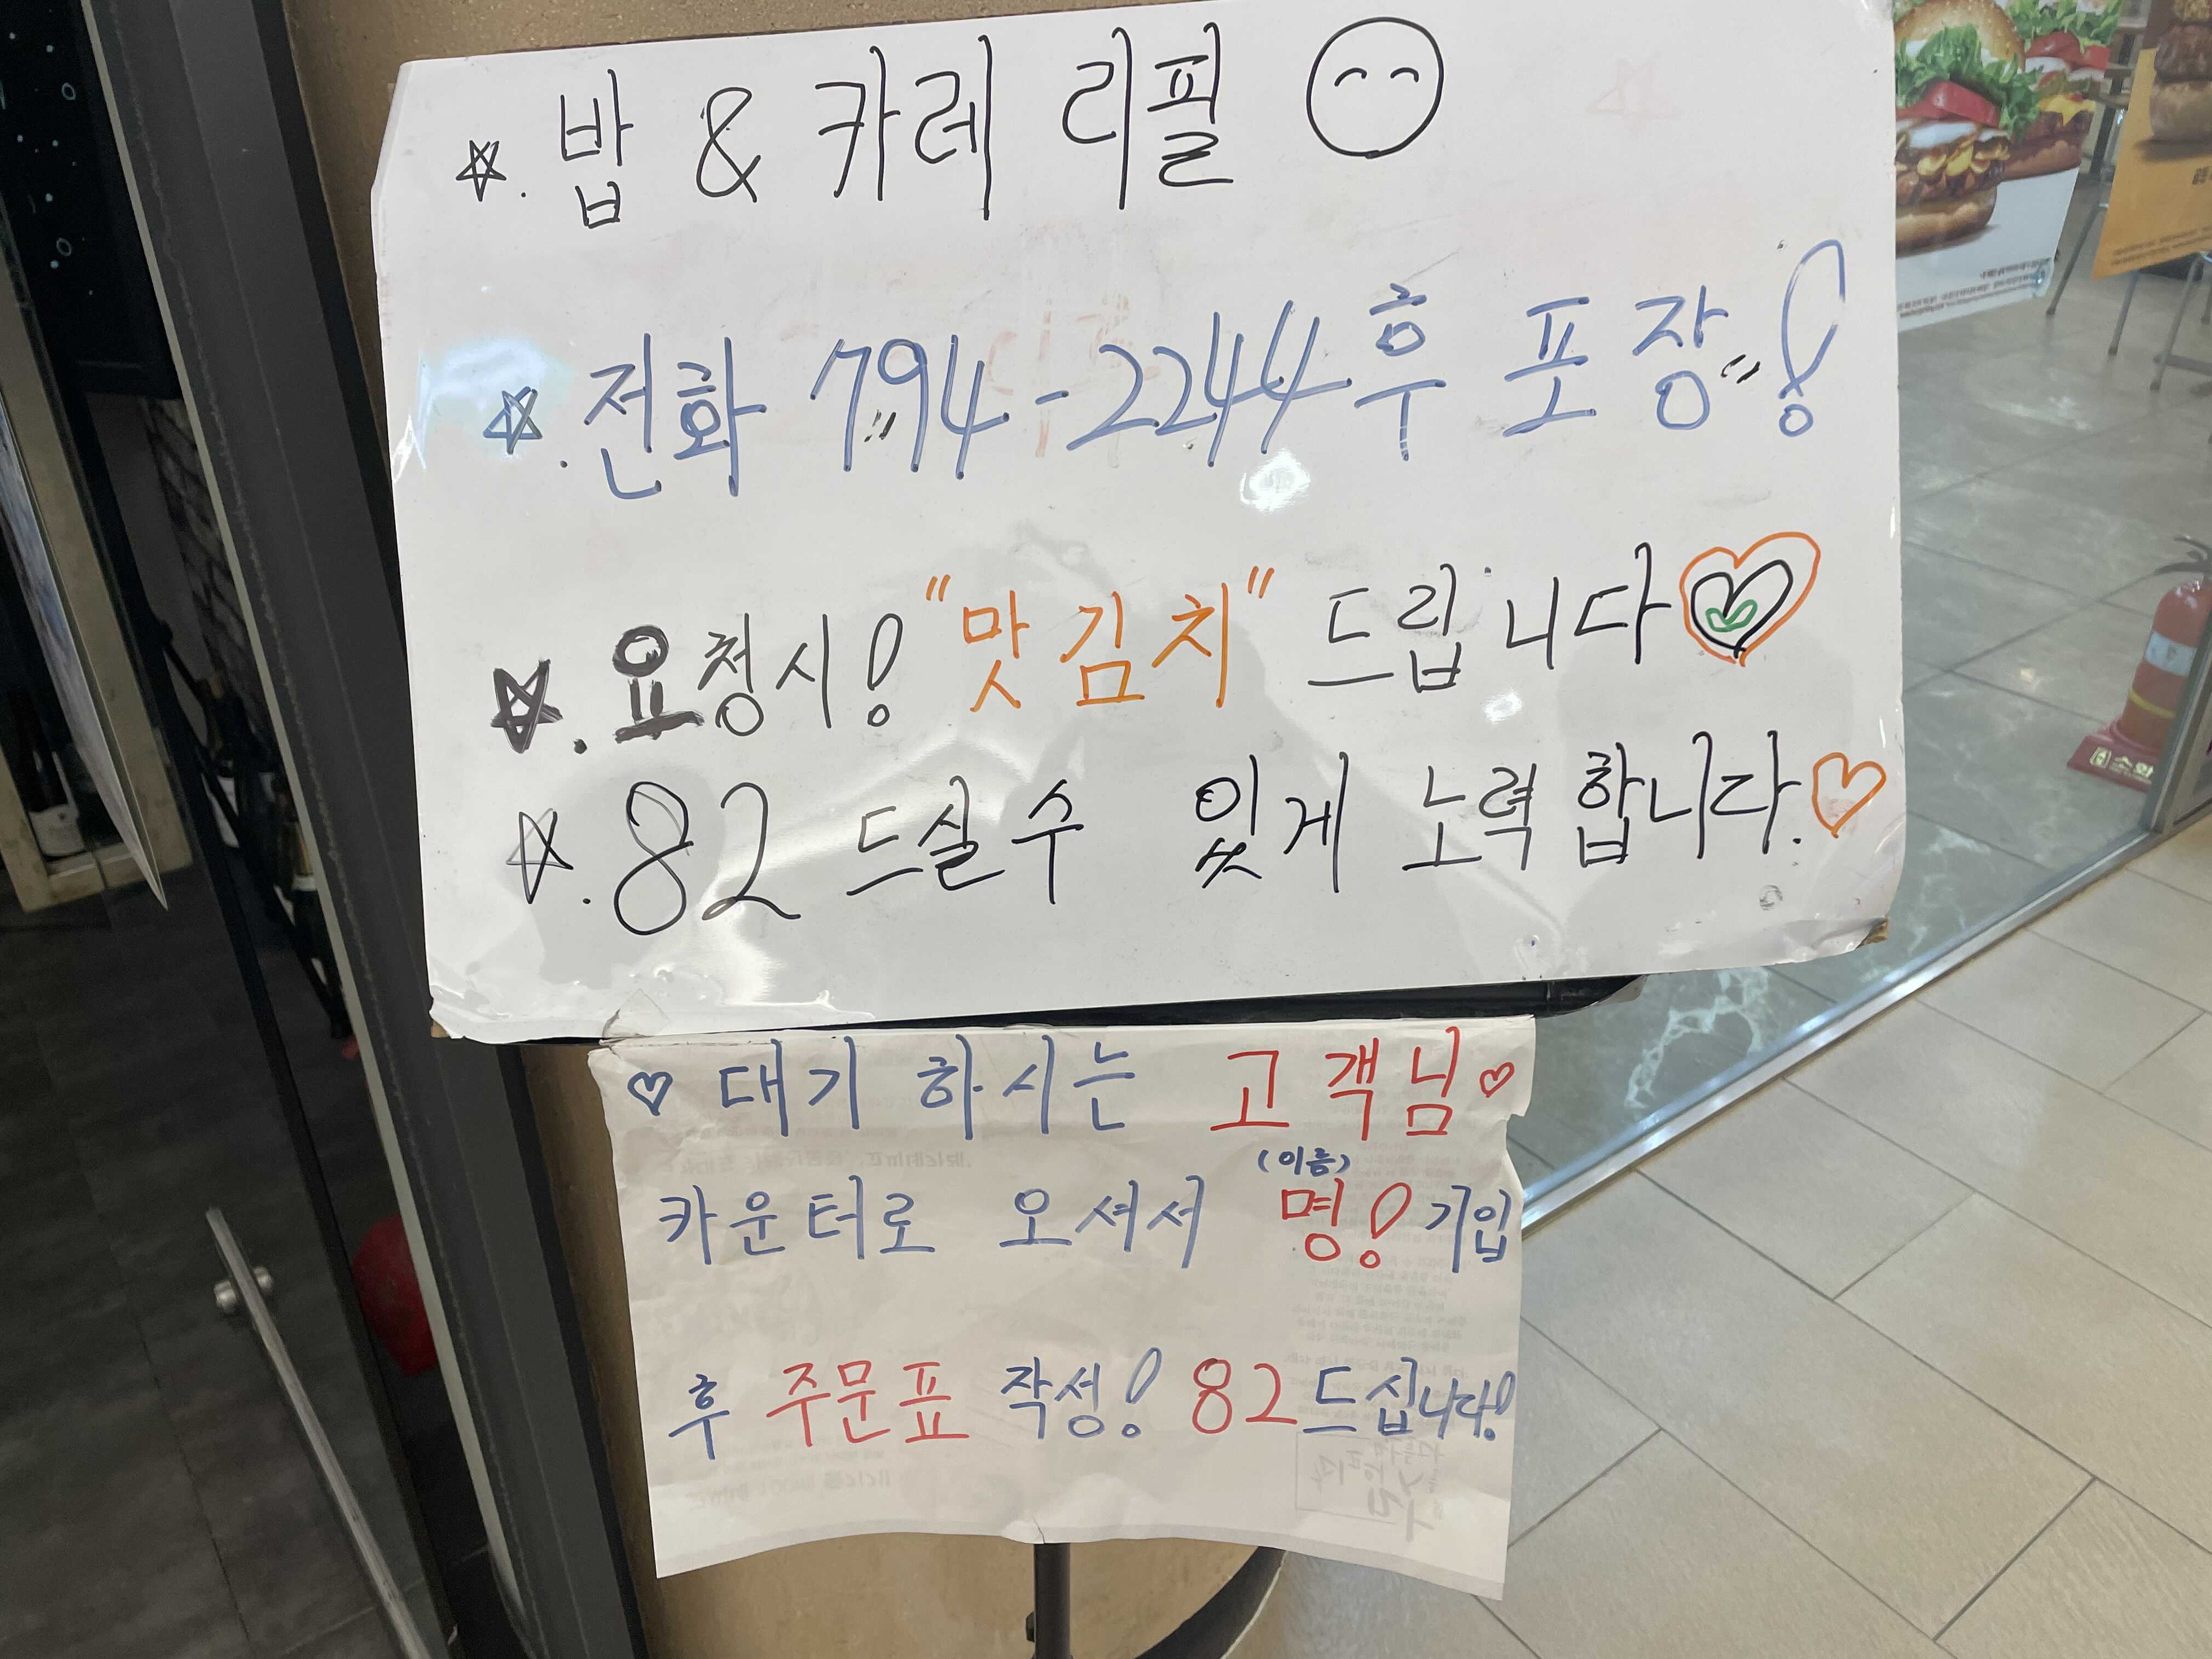 ☆. 밥 & 카레 리필
☆. 전화 794-2244 후 포장"!
☆. 요청시! "맛김치" 드립니다♡
☆. 82 드실수 있게 노력합니다.♡
♡ 대기 하시는 고객님♡
(이름)
카운터로 오셔서 명! 기입
후 주문표 작성! 82드십니다!